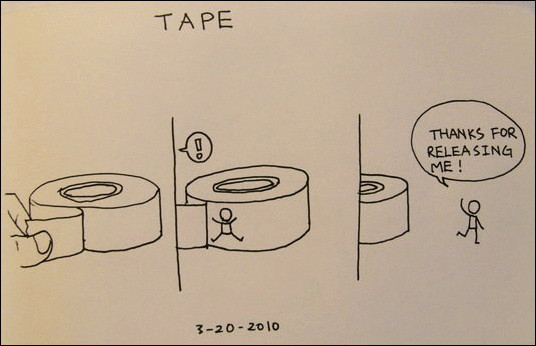 TAPE
!
THANKS FOR
RELEASING
ME!
3-20-2010